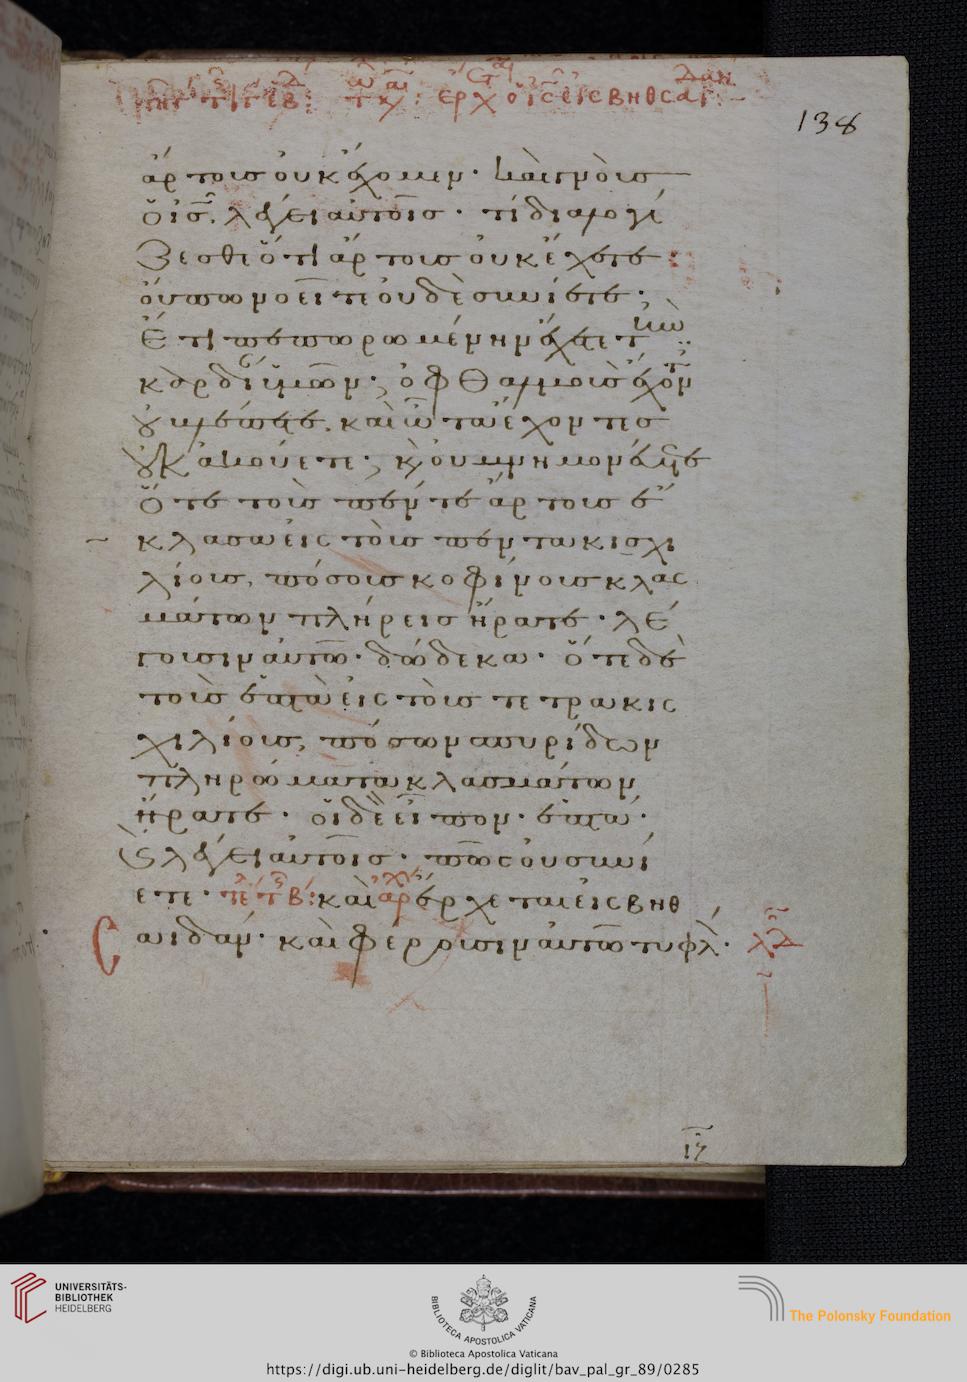 138
ἄρτους οὐκ ἔχομεν· καὶ γνοὺς
ὁ ις̅, λέγει αὐτοῖς· τί διαλογί
ζεσθε ὅτι ἄρτους οὐκ ἔχετε·
οὔπω νοεῖτε οὐδὲ συνίετε·
Ἔτι πεπωρωμένην ἔχετε τὴν
καρδίαν ὑμῶν· ὀφθαλμοὺς ἔχοντες
οὐ βλέπετε, καὶ ὦτα ἔχοντες
οὐκ ἀκούετε· κ οὐ μνημονεύετε
Ὅτε τοὺς πέντε ἄρτους ἔ
κλασα εἰς τοὺς πεντακισχι
λίους, πόσους κοφίνους κλας
μάτων πλήρεις ἤρατε· λέ
γουσιν αὐτῶ· δώδεκα· ὅτε δὲ
τοὺς ἑπτὰ εἰς τοὺς τετρακις
χιλίους, πόσων σπυρίδων
πληρώματα κλασμάτων
ἤρατε· οἱ δὲ εἶπον· ἑπτά·
Ἔλεγεν αὐτοῖς· πῶς οὐ συνί
ετε· καὶ ἔρχεται εἰς βηθ
σαιδάν· καὶ φέρουσιν αὐτῶ τυφλὸν·
UNIVERSITÄTS-
BIBLIOTHEK
HEIDELBERG
BIBLIOTECA APOSTOLICA VATICANA
© Biblioteca Apostolica Vaticana
The Polonsky Foundation
https://digi.ub.uni-heidelberg.de/diglit/bav_pal_gr_89/0285